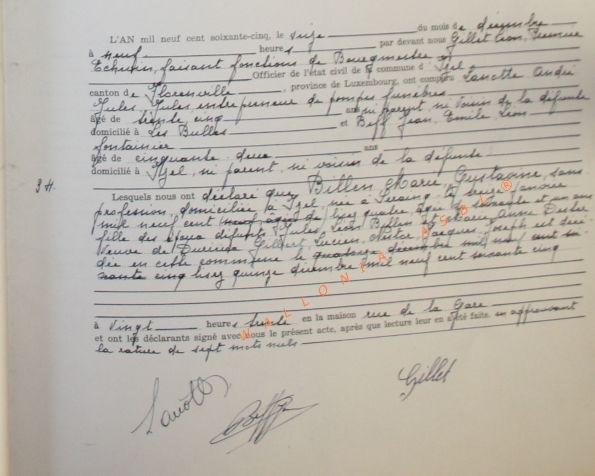 L'AN mil neuf cent soixante-cinq, le seize du mois de décembre
à neuf heures par devant nous Gillet Léon, Premier
Echevin, faisant fonctions de Bourgmestre
Officier de l'état civil de la commune d'Izel
canton de Florenville, province de Luxembourg, ont comparu Lanotte André
Jules, Jules, entrepreneur de pompes funèbres
âgé de trente cinq ans ni parent, ni voisin de la défunte
domicilié à Les Bulles et Beff Jean, Emile, Léon
fontainier
âgé de cinquante deux ans
domicilié à Izel, ni parent, ni voisin de la défunte
3 H.
Lesquels nous ont déclaré que Billen, Marie, Gustavine, sans
profession, domiciliée à Izel, née à Seraing, le treize janvier
mil neuf cent quatre, âgée de soixante et un ans
fille des époux défunts Jules, Léon Billen et Marie, Anne
Veuve de Gilbert, Lucien, Nestor, Jacques, Joseph est décé-
dée en cette commune le quatorze décembre mil neuf cent soi-
xante cinq lisez quinze décembre mil neuf cent soixante cinq
à vingt heures trente en la maison rue de la Gare
et ont les déclarants signé avec nous le présent acte, après que lecture leur en a été faite. en approuvant
la rature de sept mots nuls
Lanotte
Beff
Gillet
WALLONIA ASBL ®